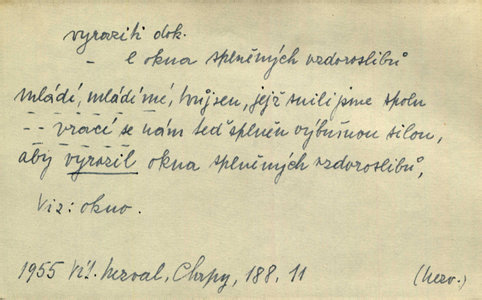 vyraziti dok.
– l okna splněných vzdoroslibů
mládí, mládí mé, můj sen, jejž snili jsme spolu
-- vrací se nám teď splněn výbušnou silou,
aby vyrazil okna splněných vzdoroslibů,
Viz: okno.
1955 Vít. Nezval, Chrpy, 188, 11 (Nezv.)